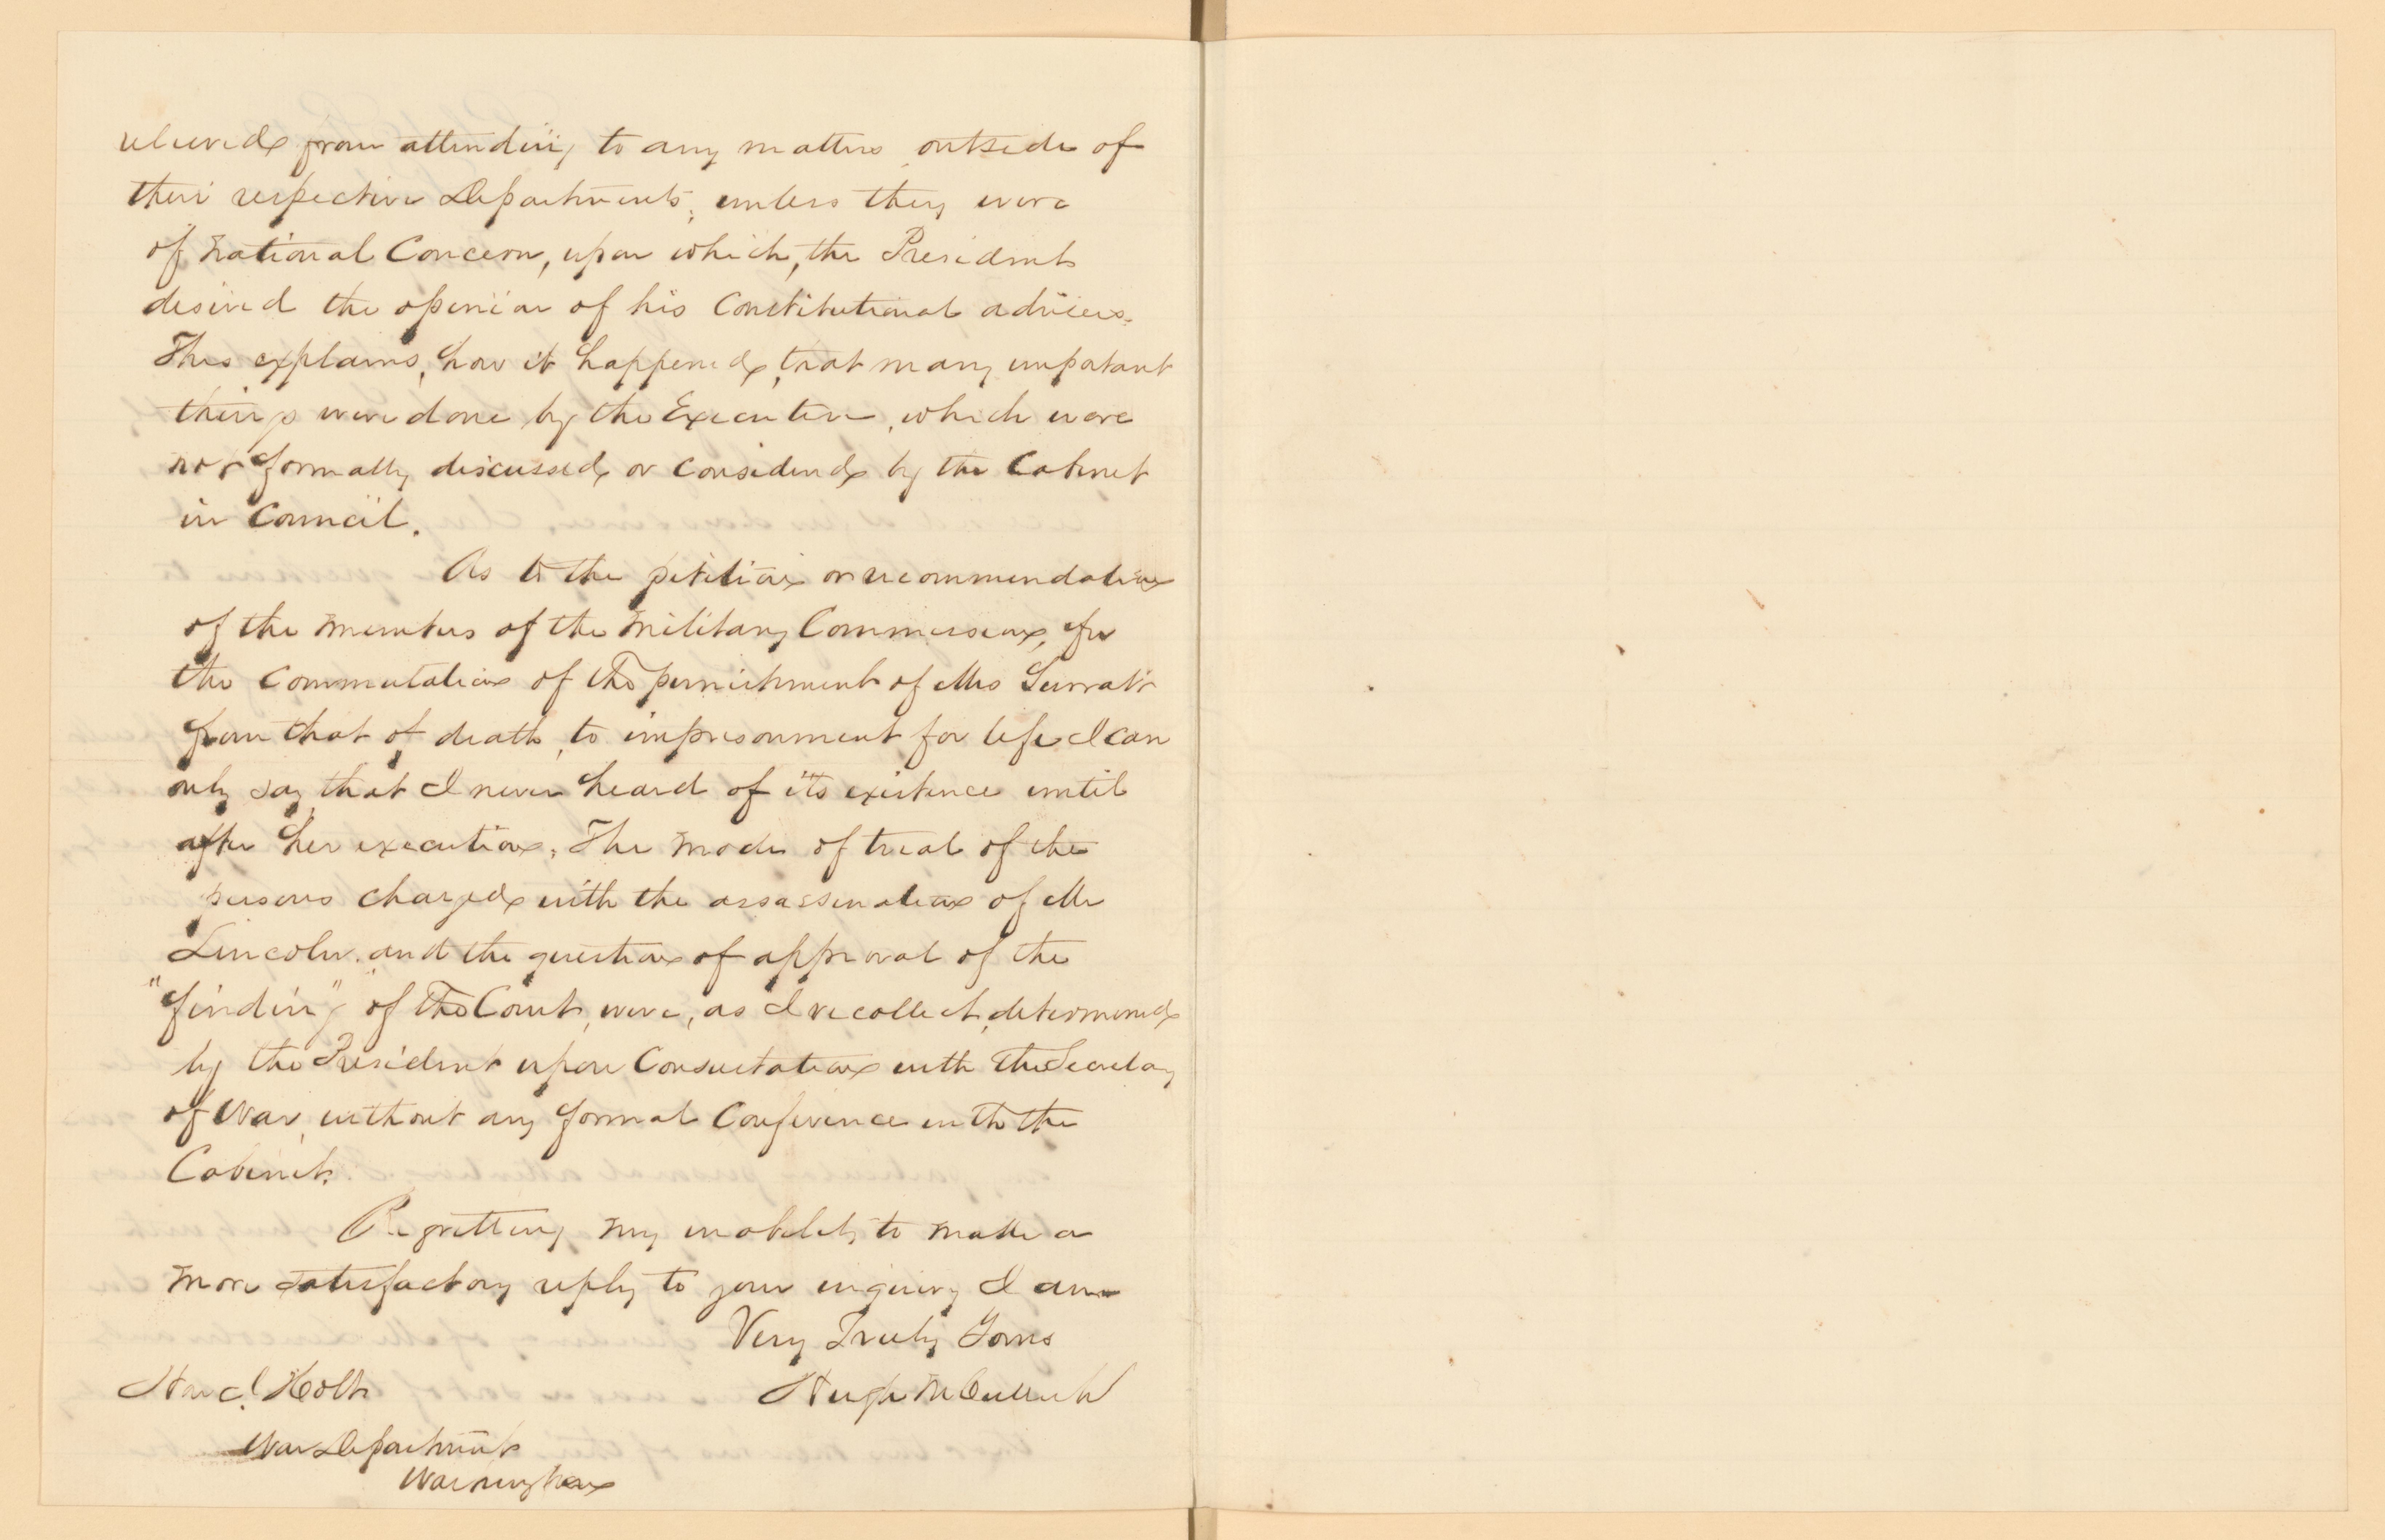 relieved from attending to any matters outside of
their respective Departments, unless they were
of national Concern, upon which, the President
desired the opinion of his Constitutional advisers.
This explains, how it happened, that many important
things were done by the Executive, which were
not formally discussed or considered by the Cabinet
in Council.
As to the petition or recommendation
of the members of the Military Commission, for
the Commutation of the punishment of Mrs Surratt
from that of death, to imprisonment for life I can
only say, that I never heard of its existence until
after her execution. The mode of trial of the
persons charged with the assassination of Mr
Lincoln, and the question of approval of the
"finding" of the Court, were, as I recollect, determined
by the President upon Consultation with the Secretary
of War, without any formal Conference with the
Cabinet.
Regretting my inability to make a
more satisfactory reply to your inquiry I am
Very Truly Yours
Hugh McCulloch
Hon J. Holt
War Department
Washington